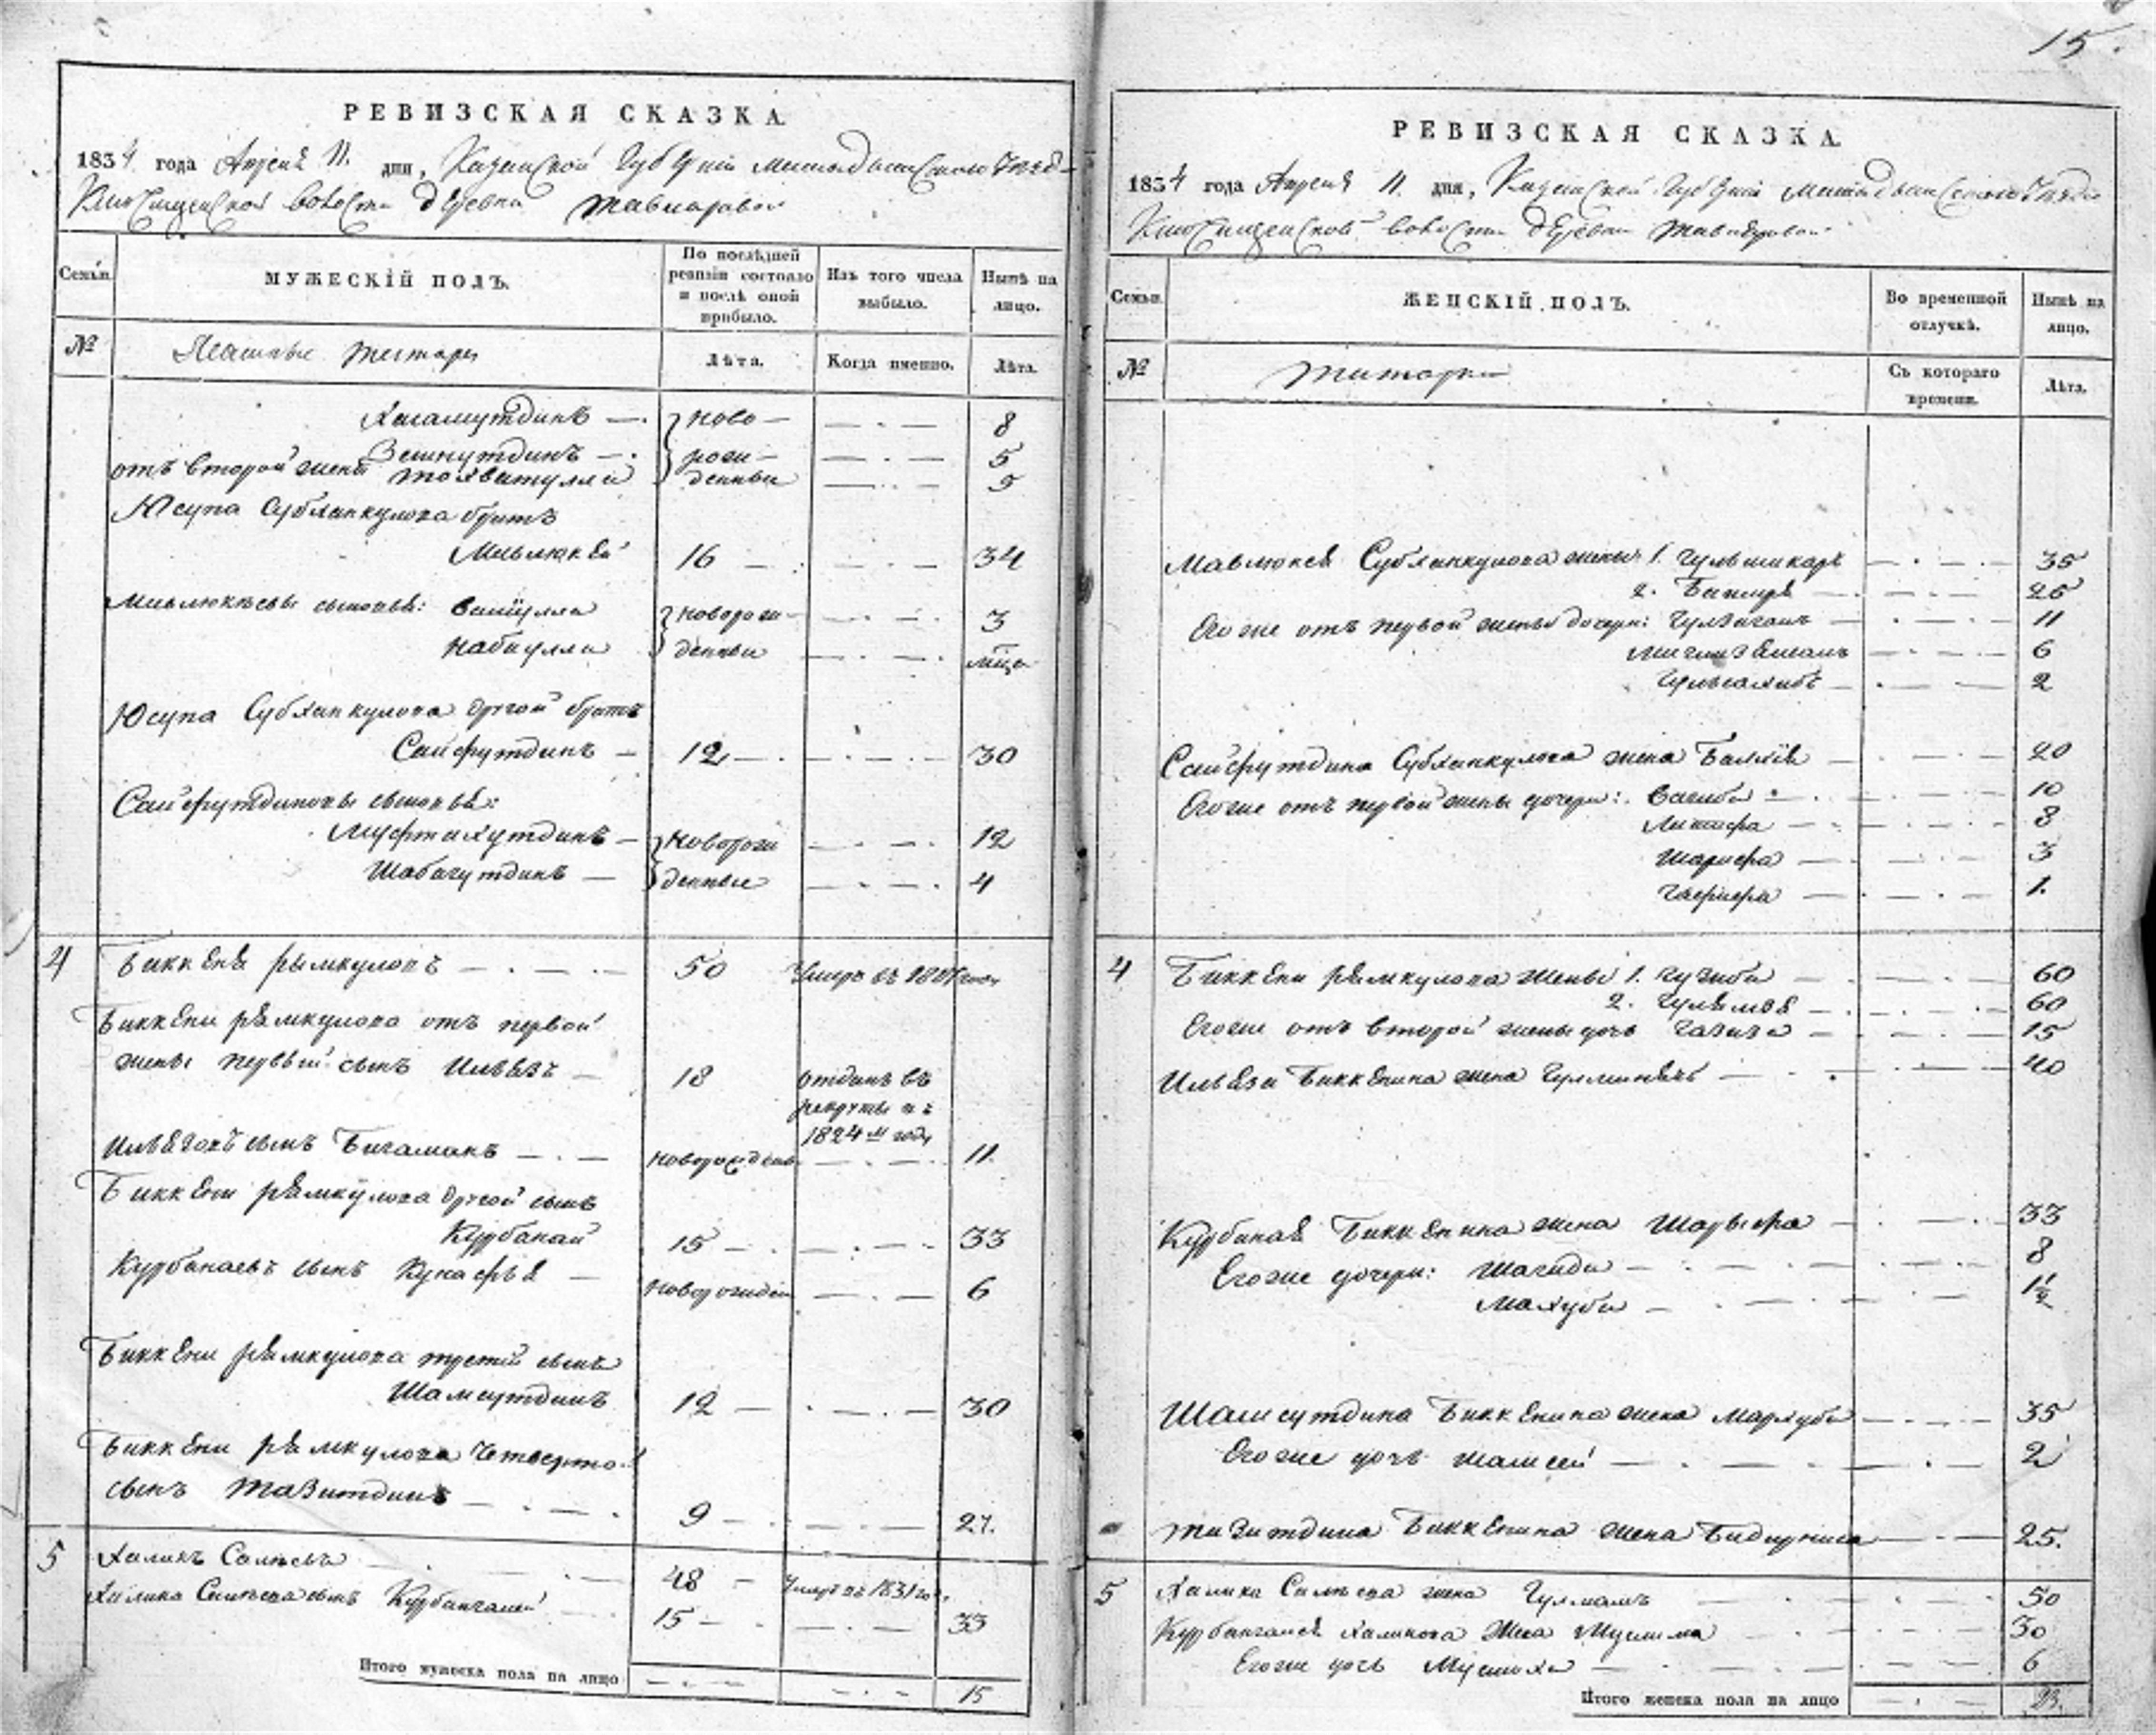 15.
РЕВИЗСКАЯ СКАЗКА.
1834 года Апреля 11. дня, Казанской Губерніи Мамадышскаго Уезда
волости деревни
Семьи.
МУЖЕСКІЙ ПОЛЪ.
По послѣдней ревизіи состояло и послѣ оной прибыло.
Изъ того числа выбыло.
Нынѣ на лицо.
№
Ясашные татары
Лѣта.
Когда именно.
Лѣта.
Хисамутдинъ — ново- 8
Зейнутдинъ — рож- 5
отъ второй жены Тохватулла денные 5
Юсупа Субханкулова братъ
Мавлюкей 16 34
Мавлюкѣевы сыновья: Валиулла новорож- 3
Набиулла денные мѣсяц
Юсупа Субханкулова другой братъ
Сайфутдинъ — 12 30
Сайфутдиновы сыновья:
Муфтахутдинъ — новорож 12
Шабагутдинъ — денные 4
4 Биккеня Рямкуловъ 50 Умеръ въ году
Биккени Рямкулова отъ первой
жены первый сынъ Ильязъ — 18 отданъ въ
рекруты въ
1824 м году
сынъ новорожден 11.
Биккени Рямкулова другой сынъ
Курбанай 15 33
Курбанаевъ сынъ Кунафья — новорожден 6
Биккени Рямкулова третій сынъ
Шамсутдинъ 12 30
Биккени Рямкулова четвертой
сынъ Тазитдинъ 9 27.
5 Халикъ Салѣевъ 48 Умеръ въ 1831 го.
Халика Салѣева сынъ Курбангалей 15 33
Итого мужеска пола на лицо 15
РЕВИЗСКАЯ СКАЗКА.
1834 года Апреля 11. дня, Казанской Губерніи Мамадышскаго Уезда
волости деревни
Семьи.
ЖЕНСКІЙ ПОЛЪ.
Во временной отлучкѣ.
Нынѣ на лицо.
№
Татарки
Съ котораго времени.
Лѣта.
Мавлюкея Субханкулова жены 1. Гульшикаръ 35
2. 25
Его же отъ первой жены дочери: 11
6
2
Сайфутдина Субханкулова жена 20
Его же отъ первой жены дочери: Вагиба 10
Латифа 8
Шарифа 3
Гафифа 1.
4 Биккени Рямкулова жены 1. 60
2. 60
Его же отъ второй жены дочь Газиза 15
Ильязи Биккенина жена 40
Курбаная Биккенина жена 33
Его же дочери: Шагида 8
Махуба 1½
Шамсутдина Биккенина жена 35
Его же дочь Шамсей 2
Тазитдина Биккенина жена 25.
5 Халика Салѣева жена 50
Курбангалея Халикова жена Муслима 30
Его же дочь 6
Итого женска пола на лицо 23.